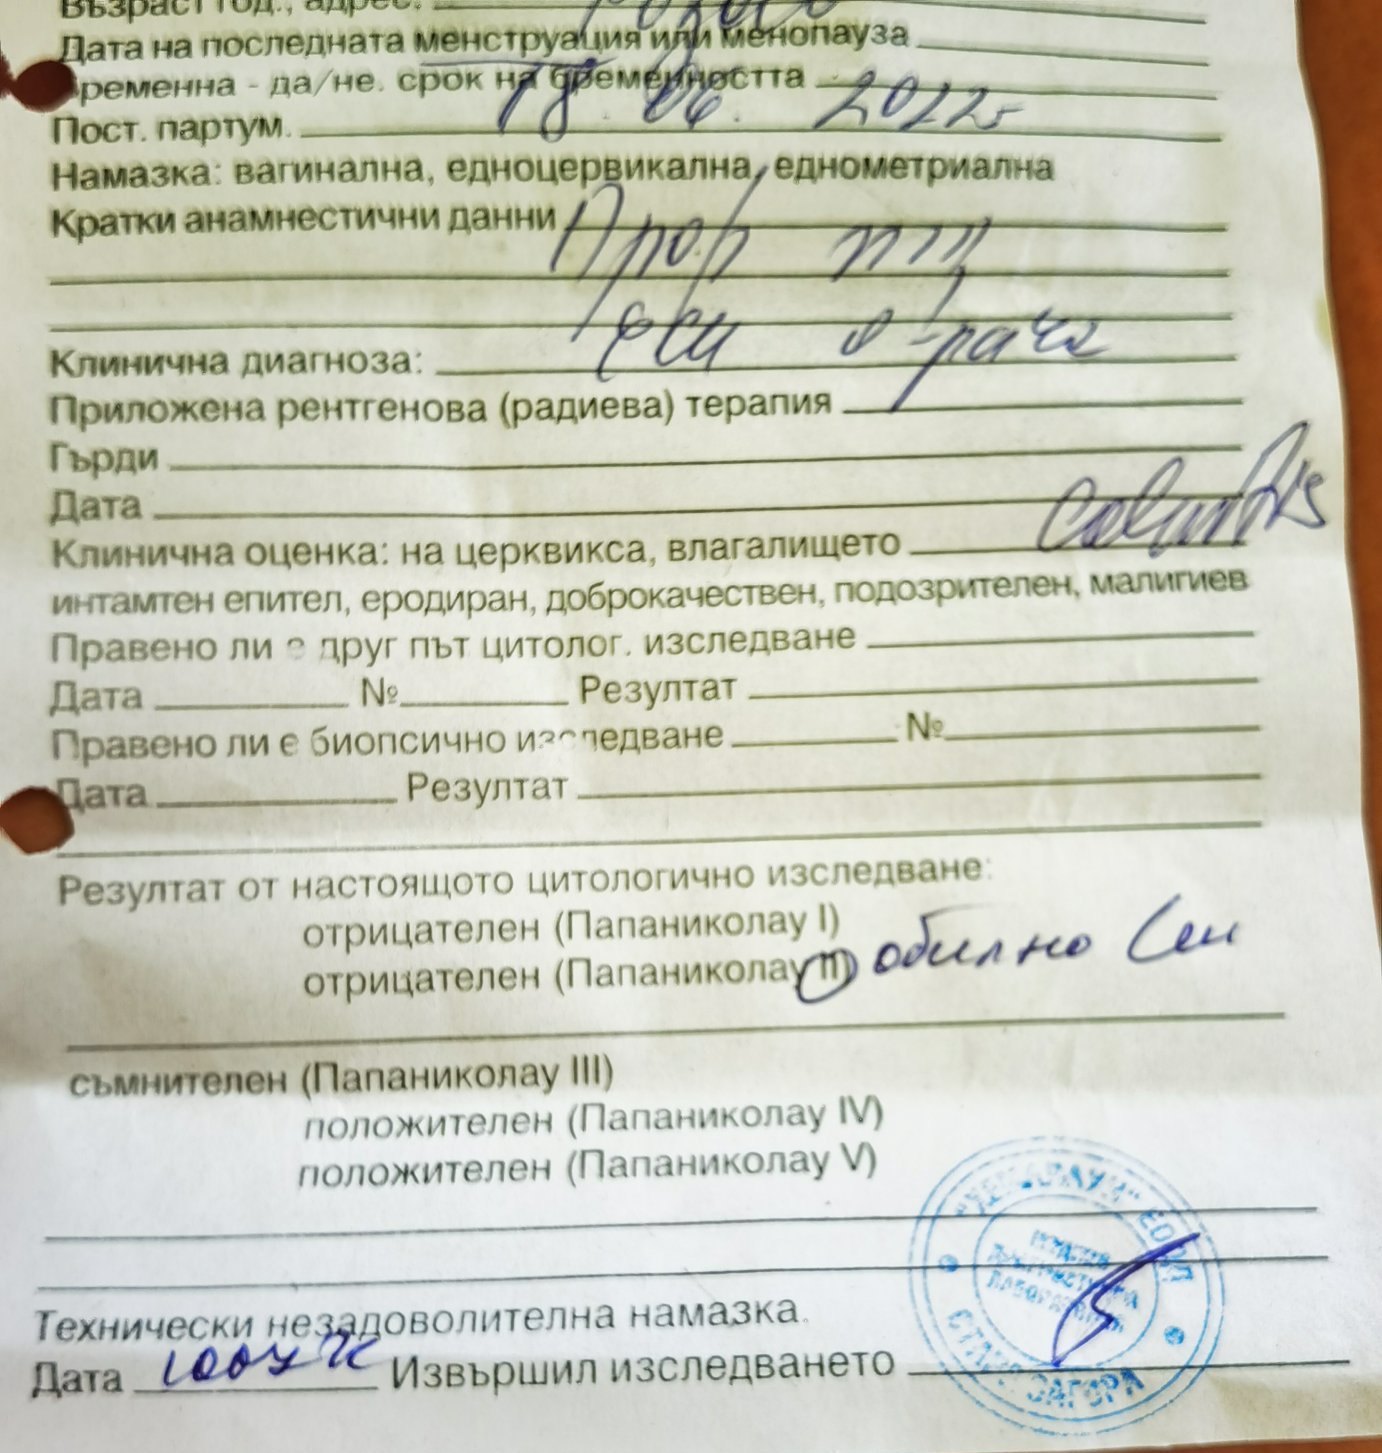 Възраст год., адрес.
Дата на последната менструация или менопауза
Бременна - да/не. срок на бременността
18. 06. 2022
Пост. партум.
Намазка: вагинална, едноцервикална, еднометриална
Кратки анамнестични данни
Клинична диагноза:
Приложена рентгенова (радиева) терапия
Гърди
Дата
Клинична оценка: на церквикса, влагалището
интамтен епител, еродиран, доброкачествен, подозрителен, малигиев
Правено ли е друг път цитолог. изследване
Дата № Резултат
Правено ли е биопсично изследване №
Дата Резултат
Резултат от настоящото цитологично изследване:
отрицателен (Папаниколау I)
отрицателен (Папаниколау II) обилно
съмнителен (Папаниколау III)
положителен (Папаниколау IV)
положителен (Папаниколау V)
Технически незадоволителна намазка.
Дата Извършил изследването
ЕООД
СТАРА ЗАГОРА